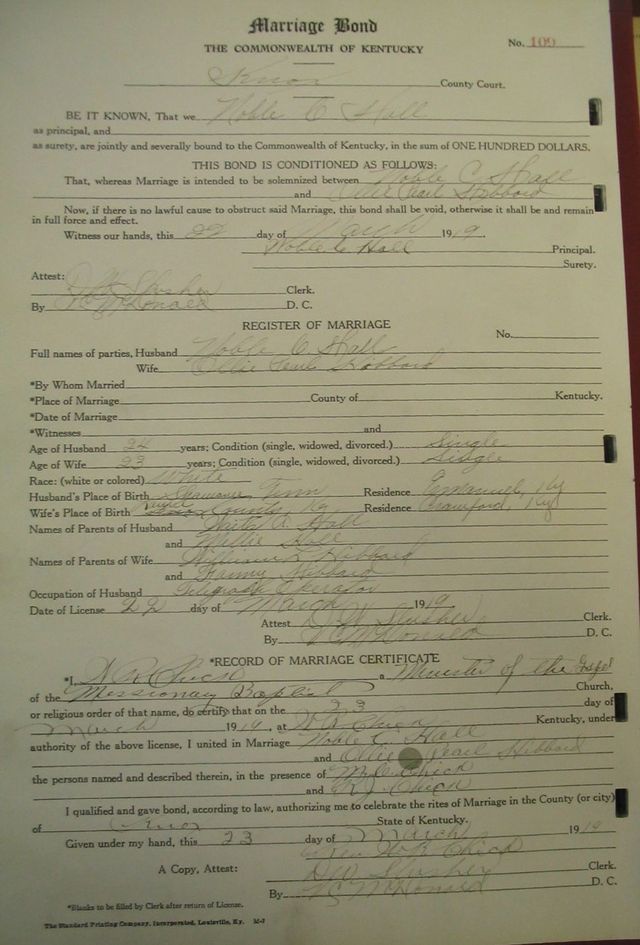 Marriage Bond
THE COMMONWEALTH OF KENTUCKY
No. 109
Knox County Court.
BE IT KNOWN, That we Noble C Hall
as principal, and
as surety, are jointly and severally bound to the Commonwealth of Kentucky, in the sum of ONE HUNDRED DOLLARS.
THIS BOND IS CONDITIONED AS FOLLOWS:
That, whereas Marriage is intended to be solemnized between Noble C. Hall
and Ollie Pearl Hibbard
Now, if there is no lawful cause to obstruct said Marriage, this bond shall be void, otherwise it shall be and remain
in full force and effect.
Witness our hands, this 22 day of March 1919.
Noble C Hall Principal.
Surety.
Attest:
Slusher Clerk.
By McDonald D. C.
REGISTER OF MARRIAGE
No.
Full names of parties, Husband Noble C Hall
Wife Ollie Pearl Hibbard
*By Whom Married
*Place of Marriage County of Kentucky.
*Date of Marriage
*Witnesses and
Age of Husband 24 years; Condition (single, widowed, divorced.) Single
Age of Wife 23 years; Condition (single, widowed, divorced.) Single
Race: (white or colored) White
Husband's Place of Birth Tenn Residence Emanuel, Ky
Wife's Place of Birth County, Ky Residence Crawford, Ky
Names of Parents of Husband Hall
and Millie Hall
Names of Parents of Wife William Hibbard
and Fanny Hibbard
Occupation of Husband Telegraph Operator
Date of License 22 day of March 1919
Attest D W Slusher Clerk.
By McDonald D. C.
*RECORD OF MARRIAGE CERTIFICATE
*I, Chick a Minister of the Gospel
of the Missionary Baptist Church,
or religious order of that name, do certify that on the 23 day of
March 1919, at Chick Kentucky, under
authority of the above license, I united in Marriage Noble C. Hall
and Ollie Pearl Hibbard
the persons named and described therein, in the presence of Chick
and Chick
I qualified and gave bond, according to law, authorizing me to celebrate the rites of Marriage in the County (or city)
of Knox State of Kentucky.
Given under my hand, this 23 day of March 1919
Rev Chick
A Copy, Attest: D W Slusher Clerk.
By McDonald D. C.
*Blanks to be filled by Clerk after return of License.
The Standard Printing Company, Incorporated, Louisville, Ky.